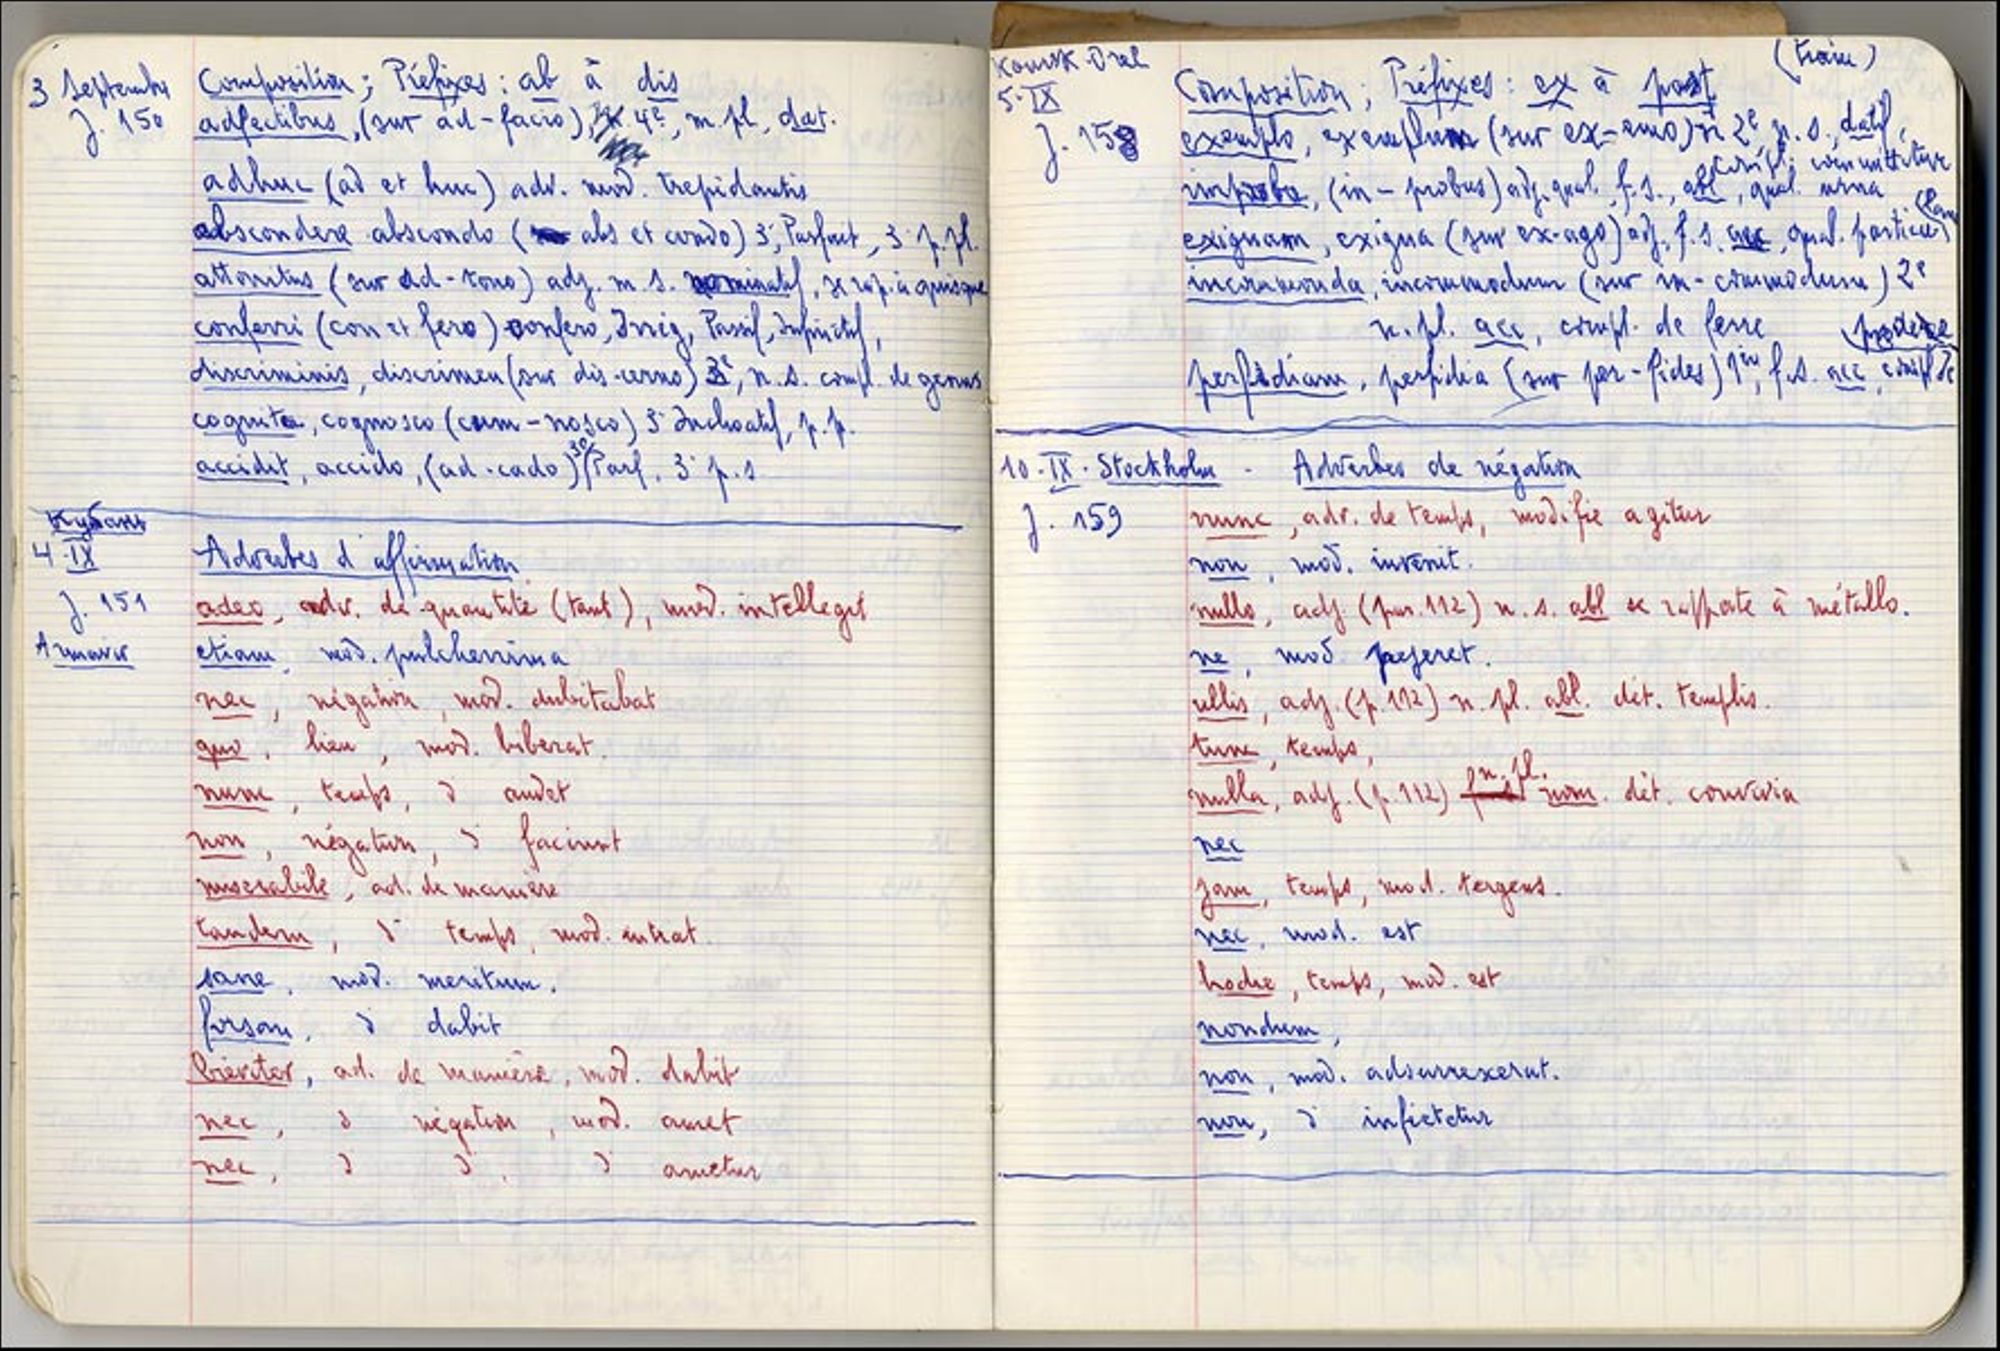 3 Septembre
J. 150
Composition ; Préfixes : ab à dis
adfectibus, (sur ad-facio), 4e, m. pl, dat.
adhuc (ad et huc) adv. mod. trepidantis
abscondere abscondo ( abs et condo) 3e, Parfait, 3e p. pl.
attonitus (sur ad-tono) adj. m. s. nominatif, se rap. à quisque
conferri (con et fero) confero, Irrég, Passif, Infinitif,
discriminis, discrimen (sur dis-cerno) 3e, n. s. compl. de genus
cognita, cognosco (cum-nosco) 3e Inchoatif, p. p.
accidit, accido, (ad-cado) 3e, Parf. 3e p. s
4-IX
J. 151
Armavir
Adverbes d'affirmation
adeo, adv. de quantité (tant), mod. intelleget
etiam, mod. pulcherrima
nec, négation, mod. dubitabat
quo, lieu, mod. biberat.
nunc, temps, d audet
non, négation, d faciunt
miserabile, ad. de manière
tandem, d temps, mod. intrat.
sane, mod. meritum.
forsan, d dabit
breviter, ad. de manière, mod. dabit
nec, d négation, mod. amet
nec, d d, d ametur
Koursk-Orel
5-IX
J. 158
(train)
Composition ; Préfixes : ex à post
exemplo, exemplum (sur ex-emo) n 2e n. s. datif,
compl. committitur
improba, (in-probus) adj. qual. f. s., abl, qual. urna
exiguam, exigua (sur ex-ago) adj. f. s. acc, qual. particul
incommoda, incommodum (sur in-commodum) 2e
n. pl. acc, compl. de ferre
perfidiam, perfidia (sur per-fides) 1re, f. s. acc, compl de
10-IX-Stockholm - Adverbes de négation
J. 159
nunc, adv. de temps, modifie agitur
non, mod. invenit.
nullo, adj. (par. 112) n. s. abl se rapporte à métallo.
ne, mod pejeret.
ullis, adj. (p. 112) n. pl. abl. dét. templis.
tunc, temps,
nulla, adj. (p. 112) n. pl. nom. dét. convivia
nec
jam, temps, mod. tergens.
nec, mod. est
hodie, temps, mod. est
nondum,
non, mod. adsurrexerat.
non, d infictetur